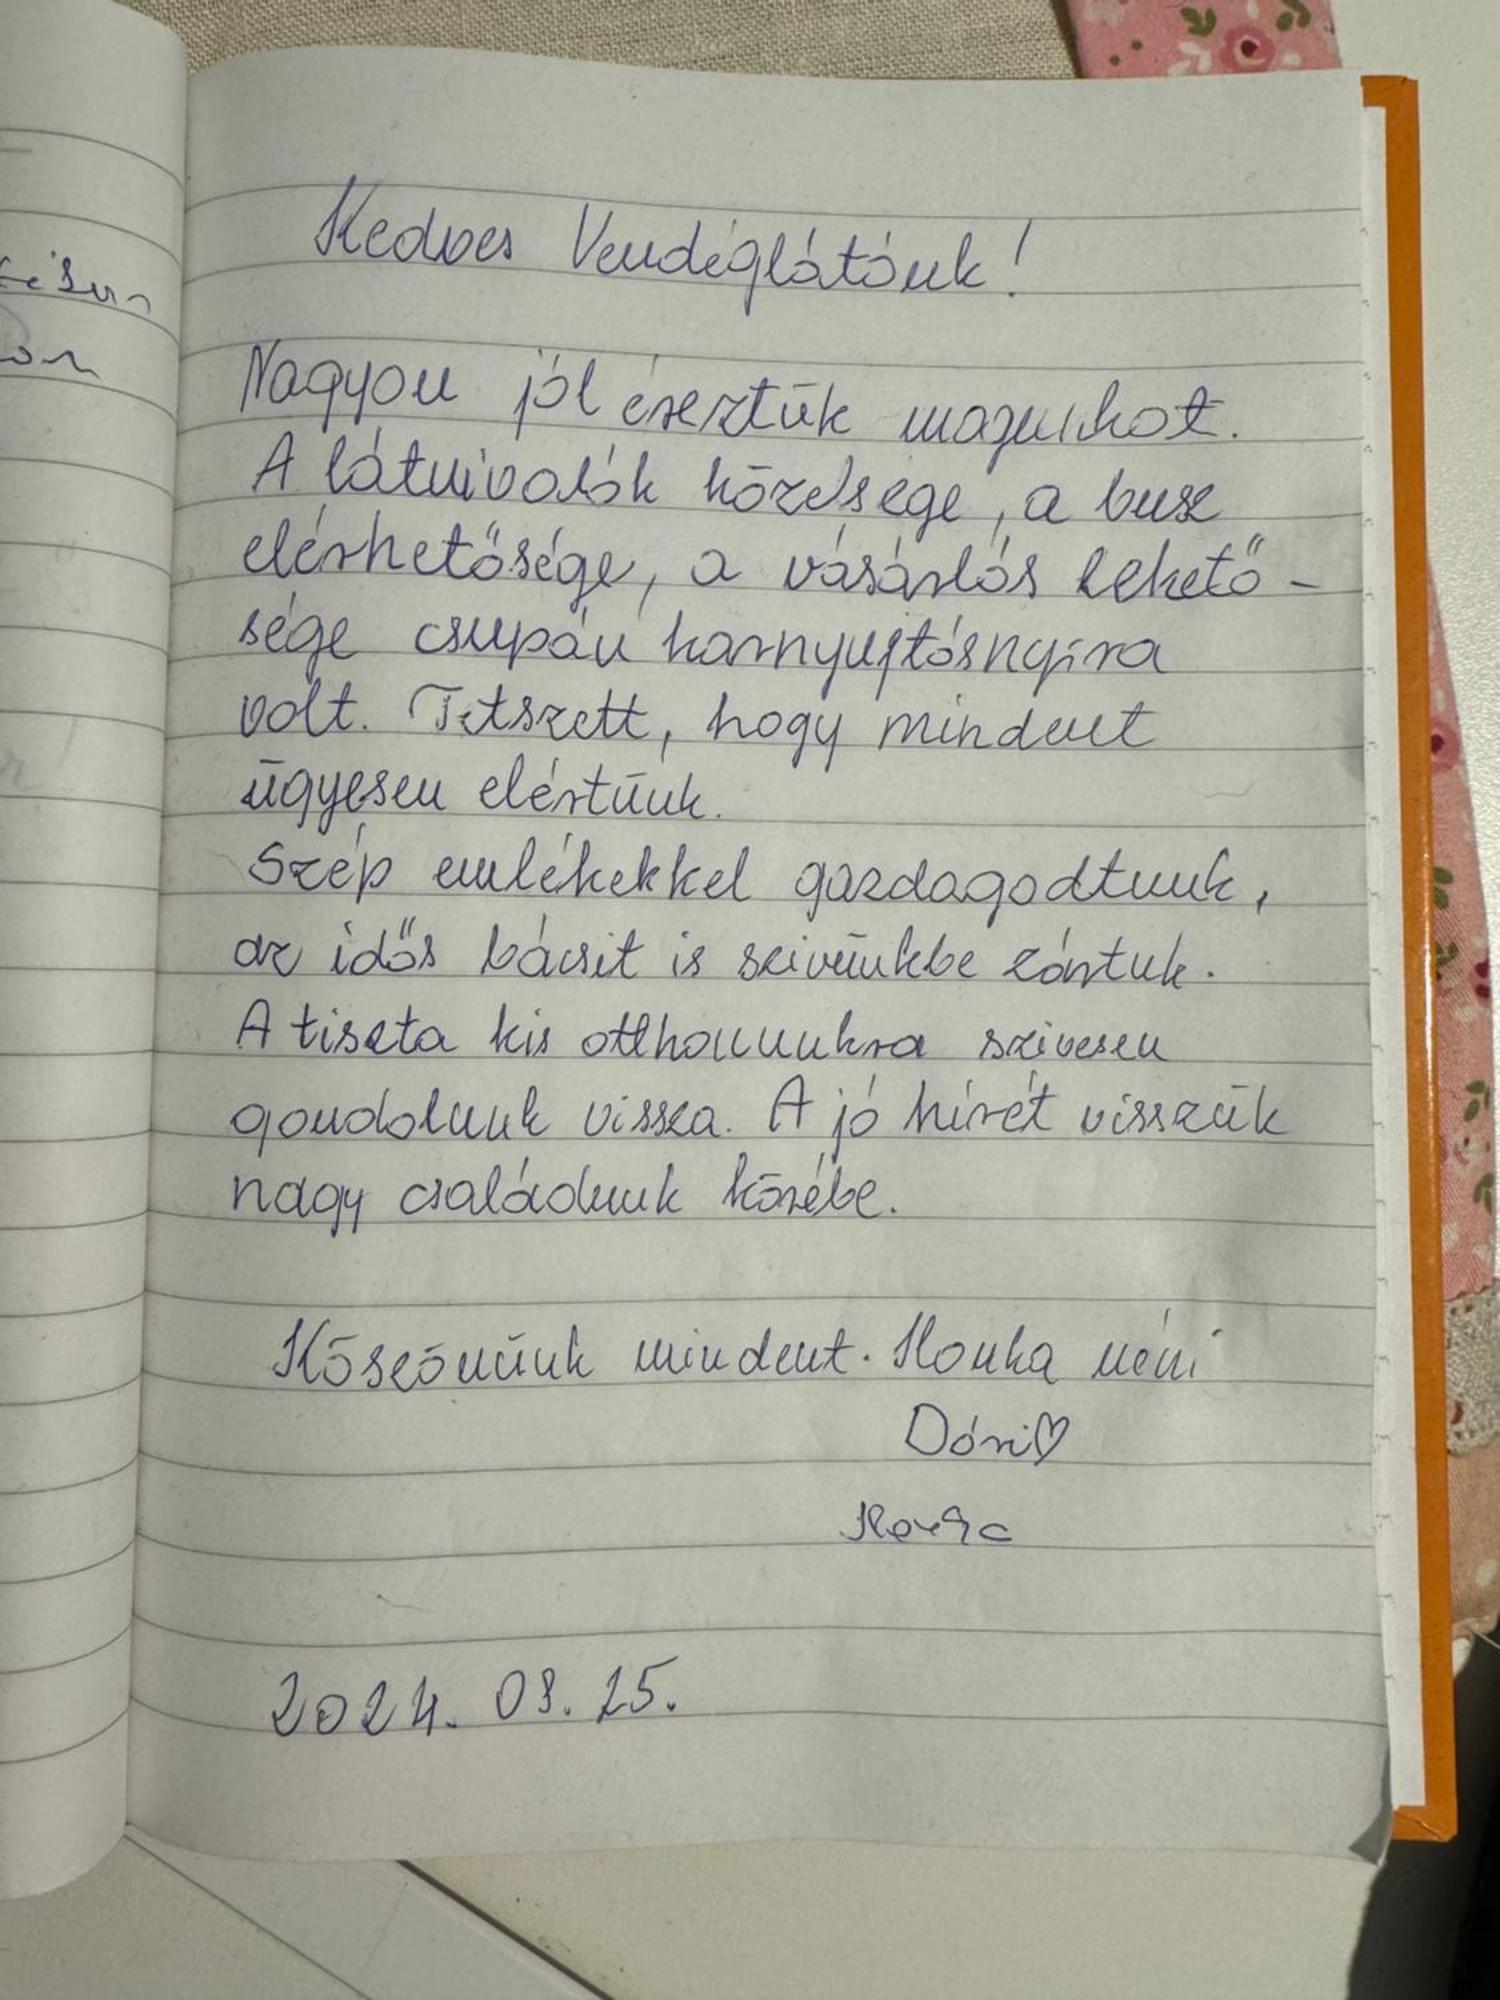 Kedves Vendéglátónk!
Nagyon jól éreztük magunkat.
A látnivalók közelsége, a busz
elérhetősége, a vásárlás lehető-
sége csupán karnyújtásnyira
volt. Tetszett, hogy mindent
ügyesen elértünk.
Szép emlékekkel gazdagodtunk,
az idős bácsit is szívünkbe zártuk.
A tiszta kis otthonunkra szívesen
gondolunk vissza. A jó hírét visszük
nagy családunk körébe.
Köszönünk mindent. Ilonka néni
Dóri♡
2024. 08. 25.